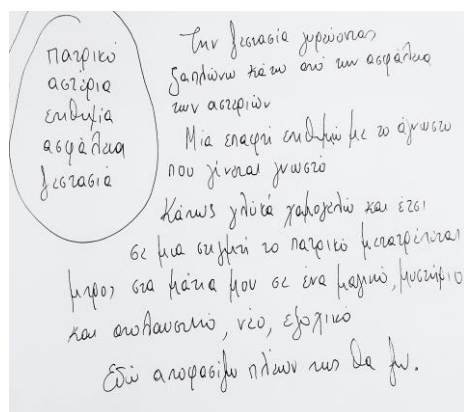 πατρικό
αστέρια
επιθυμία
ασφάλεια
ζεστασιά
Την ζεστασία γυρεύοντας
ξαπλώνω κάτω από την ασφάλεια
των αστεριών
Μία επαφή επιθυμώ με το άγνωστο
που γίνεται γνωστό
Κάπως γλυκά χαμογελώ και έτσι
σε μια στιγμή το πατρικό μετατρέπεται
μπρος στα μάτια μου σε ένα μαγικό, μυστήριο
και απολαυστικό, νέο, εξοχικό
Εδώ αποφασίζω πλέων πως θα ζω.